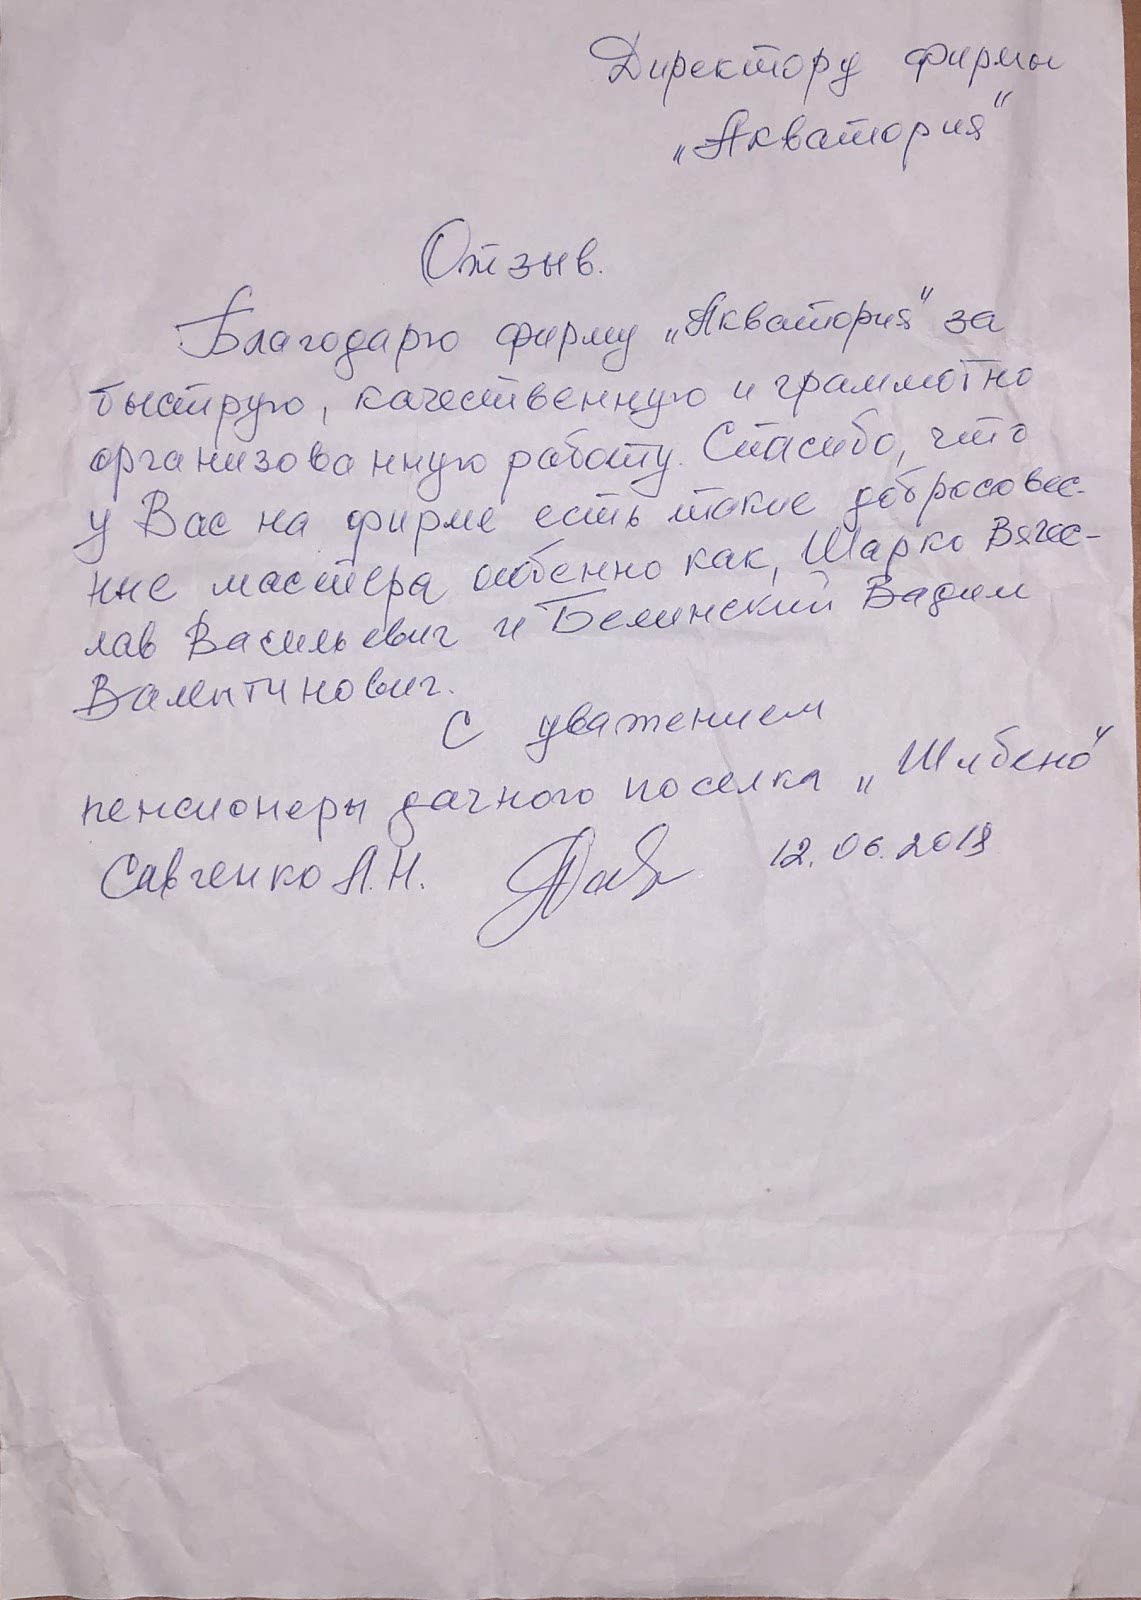 Директору фирмы
„Акватория"
Отзыв.
Благодарю фирму „Акватория" за
быструю, качественную и граммотно
организованную работу. Спасибо, что
у Вас на фирме есть такие добросовес-
ные мастера особенно как, Шарко Вячес-
лав Васильевич и Белинский Вадим
Валентинович.
С уважением
пенсионеры дачного поселка „Шлбено"
Савченко А.Н. 12.06.2018